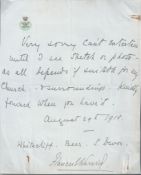 Very sorry Can't entertain
until I see sketch or photo -
as all depends if suitable for my
Church & surroundings - kindly
forward when you have it.
August 29th 1918
Whitecliff. Beer. S. Devon